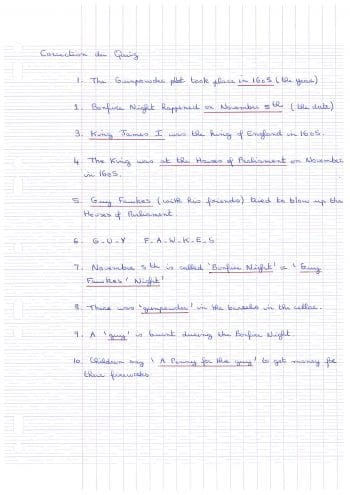 Correction du Quiz
1. The Gunpowder plot took place in 1605 (the year)
2. Bonfire Night happened on November 5th (the date)
3. King James I was the king of England in 1605.
4. The King was at the Houses of Parliament on November
in 1605.
5. Guy Fawkes (with his friends) tried to blow up the
Houses of Parliament
6. G-U-Y F-A-W-K-E-S
7. November 5th is called 'Bonfire Night' or 'Guy
Fawkes' Night'
8. There was 'gunpowder' in the barrels in the cellar.
9. A 'guy' is burnt during the Bonfire Night
10. Children say 'A Penny for the guy' to get money for
their fireworks